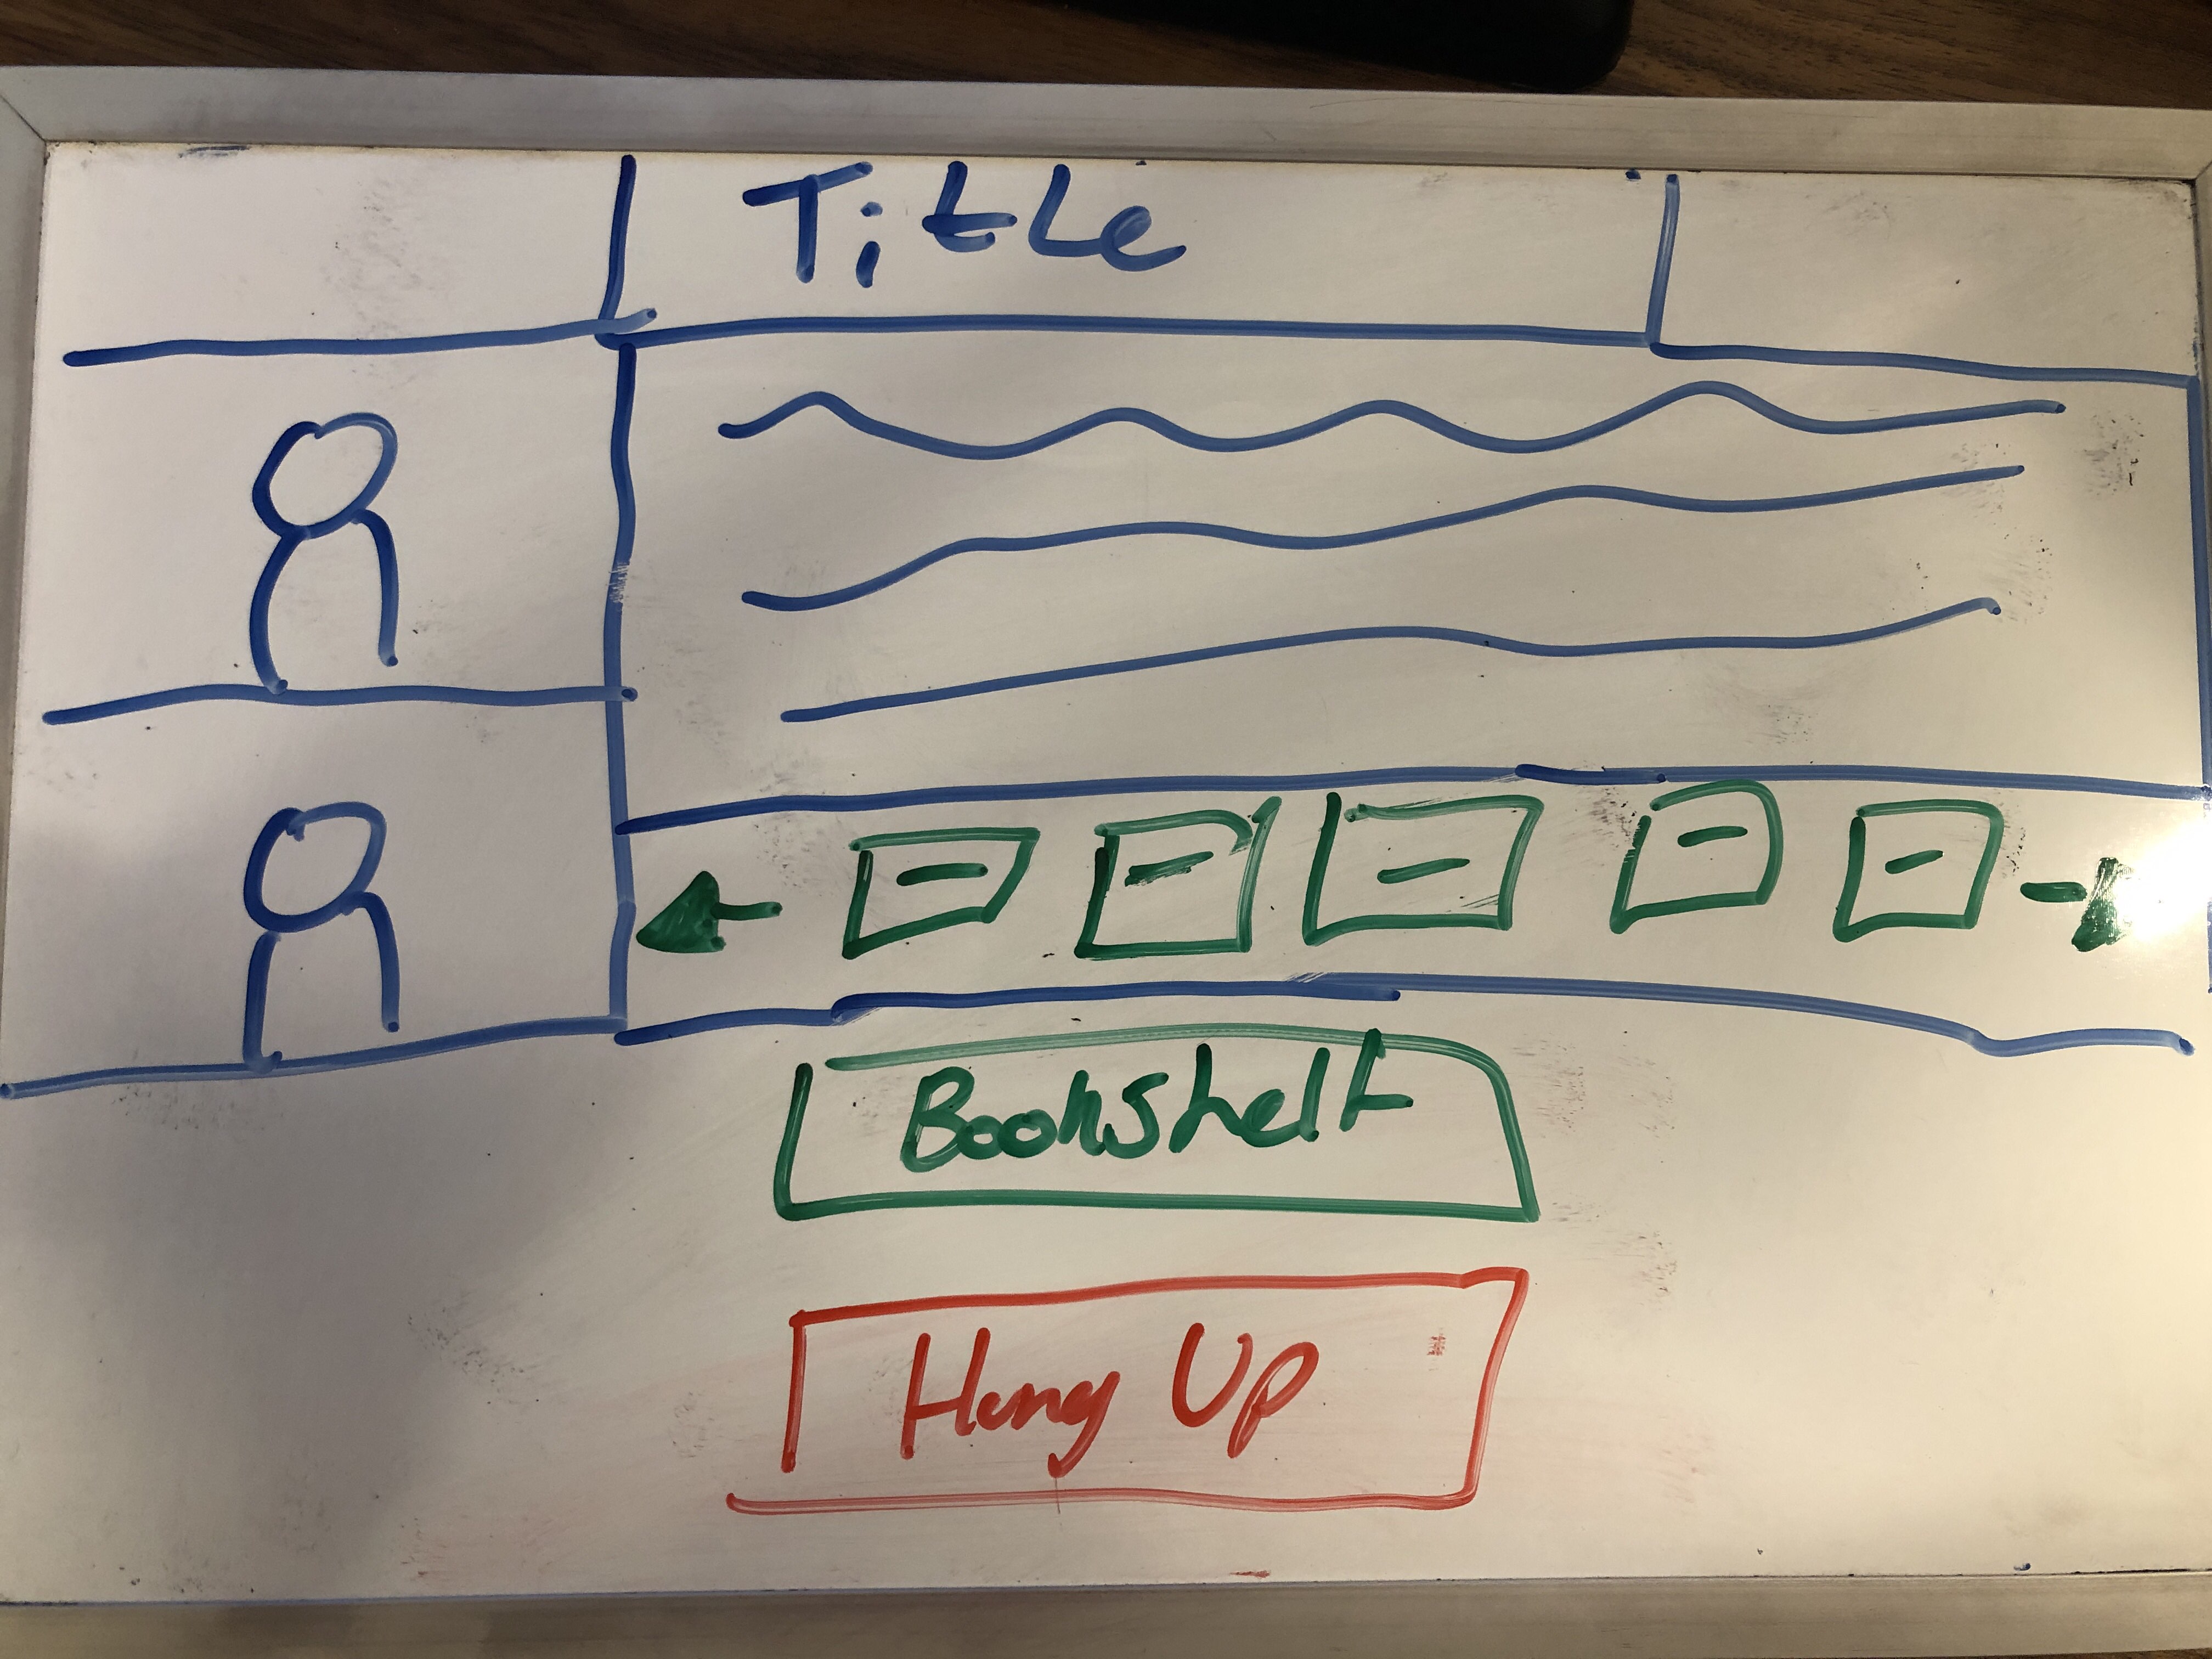 Title
Bookshelf
Hang Up